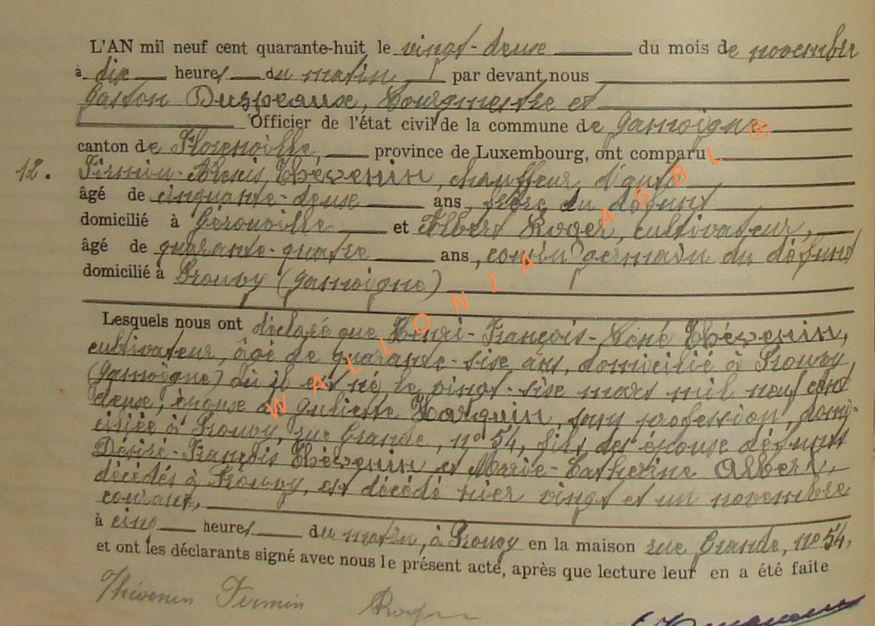 L'AN mil neuf cent quarante-huit le vingt-deux du mois de novembre
à dix heures du matin par devant nous
Gaston Duspeaux, Bourgmestre et
Officier de l'état civil de la commune de Jamoigne
canton de Florenville, province de Luxembourg, ont comparu
12. Firmin-Alexis Thévenin, chauffeur d'auto
âgé de cinquante-deux ans, frère du défunt
domicilié à Gérouville et Albert Roger, cultivateur,
âgé de quarante-quatre ans, cousin germain du défunt
domicilié à Prouvy (Jamoigne)
Lesquels nous ont déclaré que Henri-François-Aimé Thévenin,
cultivateur, âgé de quarante-six ans, domicilié à Prouvy
(Jamoigne) où il est né le vingt-six mars mil neuf cent
deux, époux de Juliette Harquin, sans profession, domi-
ciliée à Prouvy, rue Grande, n° 54, fils des époux défunts
Désiré-François Thévenin et Marie-Catherine Albert,
décédés à Prouvy, est décédé hier vingt et un novembre
courant,
à cinq heures du matin, à Prouvy en la maison rue Grande, n° 54,
et ont les déclarants signé avec nous le présent acte, après que lecture leur en a été faite
Thévenin Firmin Roger
WALLONIA ASBL ®